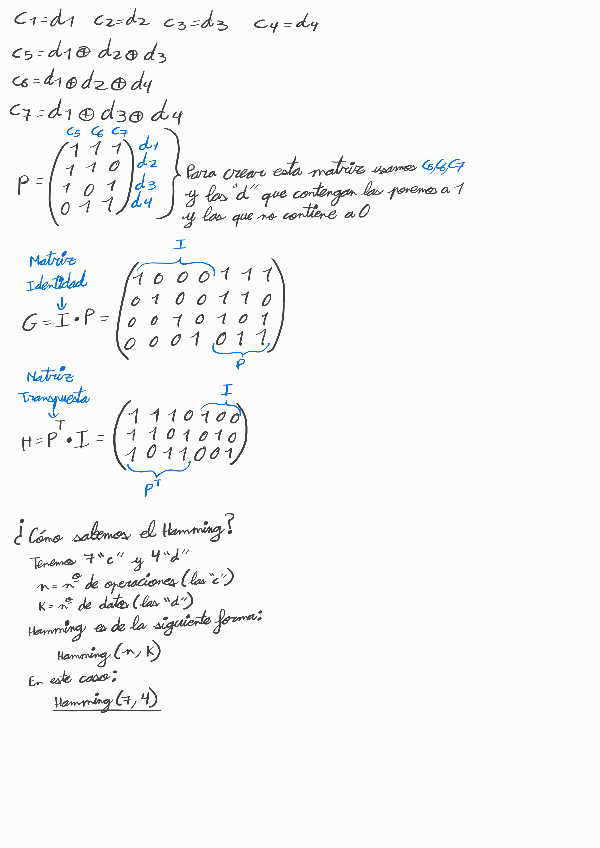 C1=d1 C2=d2 C3=d3 C4=d4
C5=d1⊕d2⊕d3
C6=d1⊕d2⊕d4
C7=d1⊕d3⊕d4
C5 C6 C7
1 1 1 d1
1 1 0 d2
P= 1 0 1 d3
0 1 1 d4
Para crear esta matriz usamos C5,C6,C7
y las "d" que contengan las ponemos a 1
y las que no contiene a 0
I
Matriz
Identidad
↓
1 0 0 0 1 1 1
0 1 0 0 1 1 0
G=I•P= 0 0 1 0 1 0 1
0 0 0 1 0 1 1
P
Matriz
Transpuesta
↓
I
1 1 1 0 1 0 0
H=P^T•I= 1 1 0 1 0 1 0
1 0 1 1 0 0 1
P^T
¿Cómo sabemos el Hamming?
Tenemos 7 "c" y 4 "d"
n=nº de operaciones (las "c")
K=nº de datos (las "d")
Hamming es de la siguiente forma:
Hamming (n, K)
En este caso:
Hamming (7, 4)